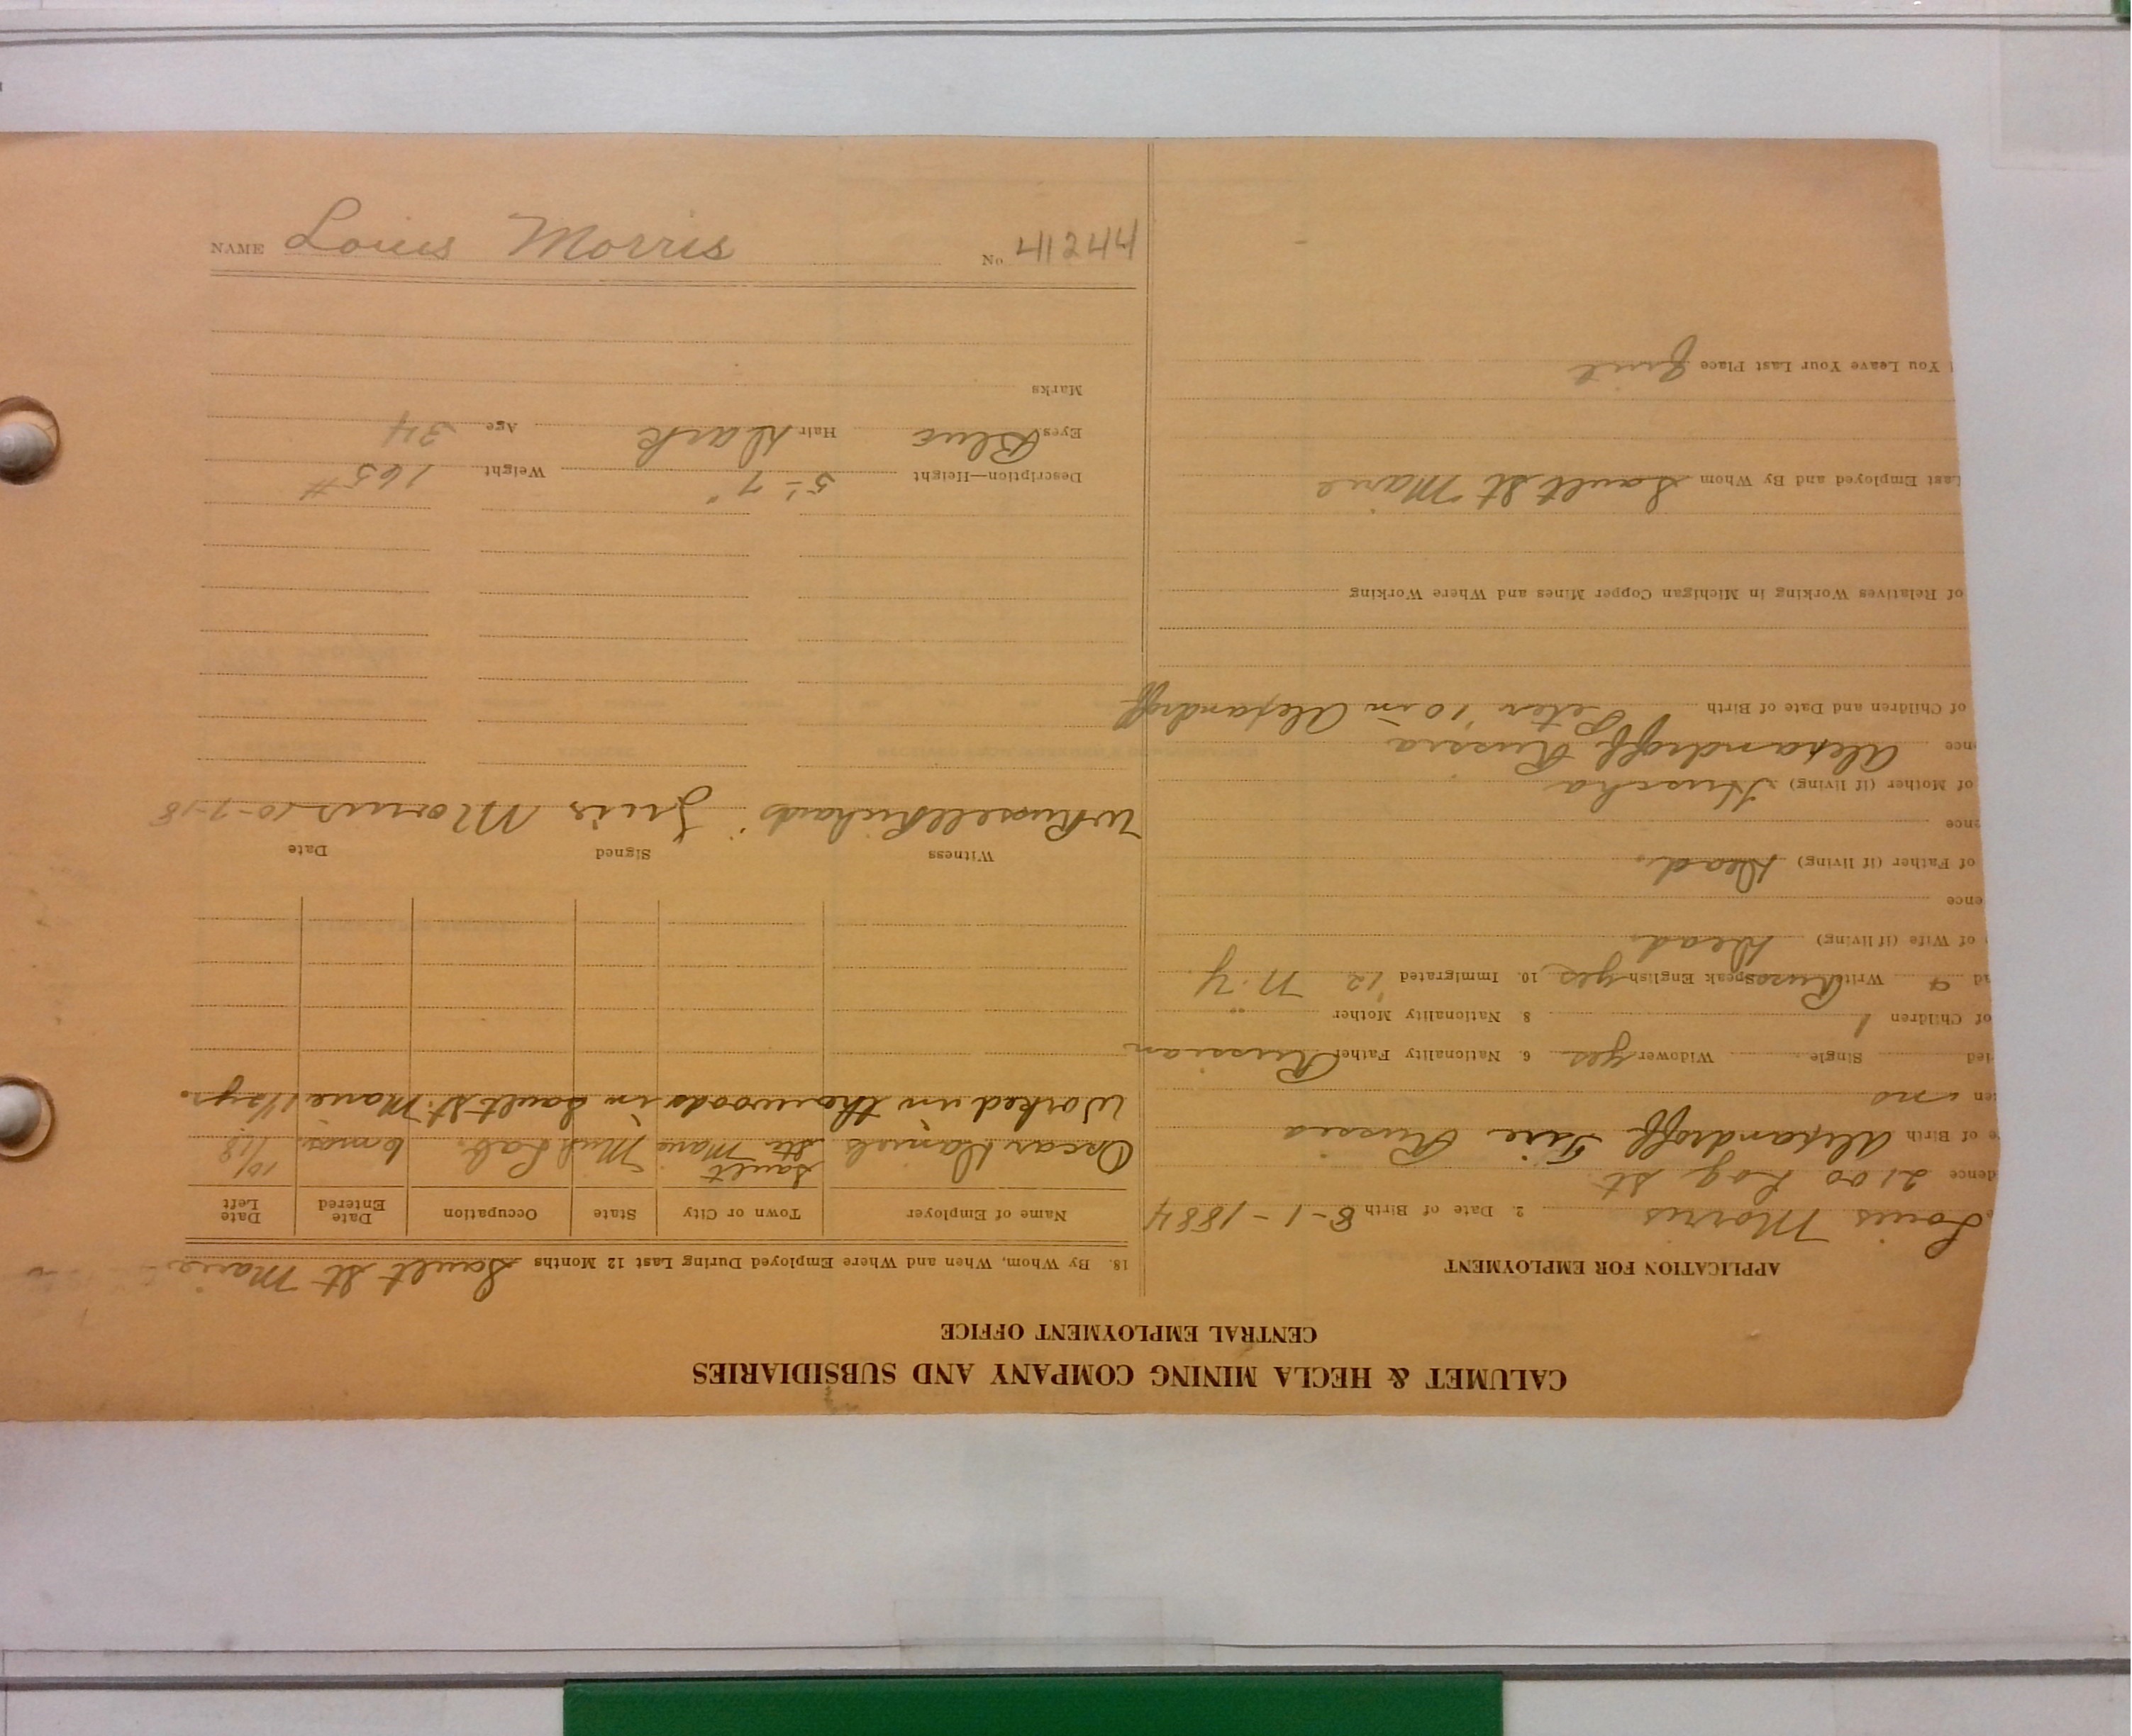 NAME Louis Morris No. 41244
CALUMET & HECLA MINING COMPANY AND SUBSIDIARIES
CENTRAL EMPLOYMENT OFFICE
APPLICATION FOR EMPLOYMENT
Louis Morris 2. Date of Birth 8-1-1884
dence 2100 Log St
e of Birth Alexandroff Russia
zen no
ied Single Widower yes 6. Nationality Father Russian
of Children 1 8. Nationality Mother "
ad Write Speak English yes 10. Immigrated '12 N.Y.
of Wife (if living) Dead
ence
of Father (if living) Dead.
ence
of Mother (if living)
ence Alexandroff Russia
of Children and Date of Birth Peter '10 in Alexandroff
of Relatives Working in Michigan Copper Mines and Where Working
Last Employed and By Whom Sault St Marie
You Leave Your Last Place
18. By Whom, When and Where Employed During Last 12 Months Sault St Marie
Name of Employer Town or City State Occupation Date Entered Date Left
Oscar Daniels Sault Ste Marie Mich Lab. 6 mos. 10/18
Worked in the woods in Sault St. Marie 1 1/2 yr.
Witness Signed Date
W Russell Richards Morris 10-7-18
Description—Height 5'-7" Weight 165#
Eyes Blue Hair Dark Age 34
Marks